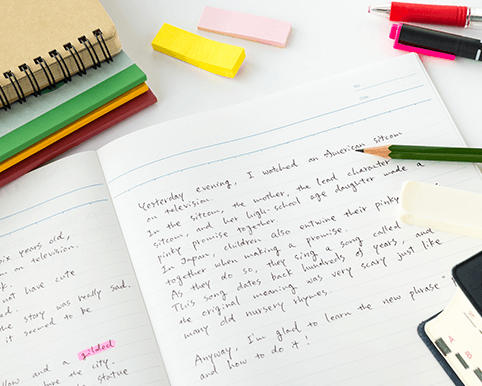 six years old,
on television.
not have cute
the story was really sad.
it seemed to be
and a gilded
the city.
statue
Yesterday evening, I watched an American sitcom
on television.
In the sitcom, the mother, the lead character
sitcom, and her high-school age daughter made a
pinky promise together.
In Japan, children also entwine their pinky
together when making a promise.
As they do so, they sing a song called
This song dates back hundreds of years, and
the original meaning was very scary just like
many old nursery rhymes.
Anyway, I'm glad to learn the new phrase "
and how to do it!